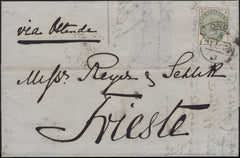 via Ostende
Messrs Reyer & Schlik
Trieste